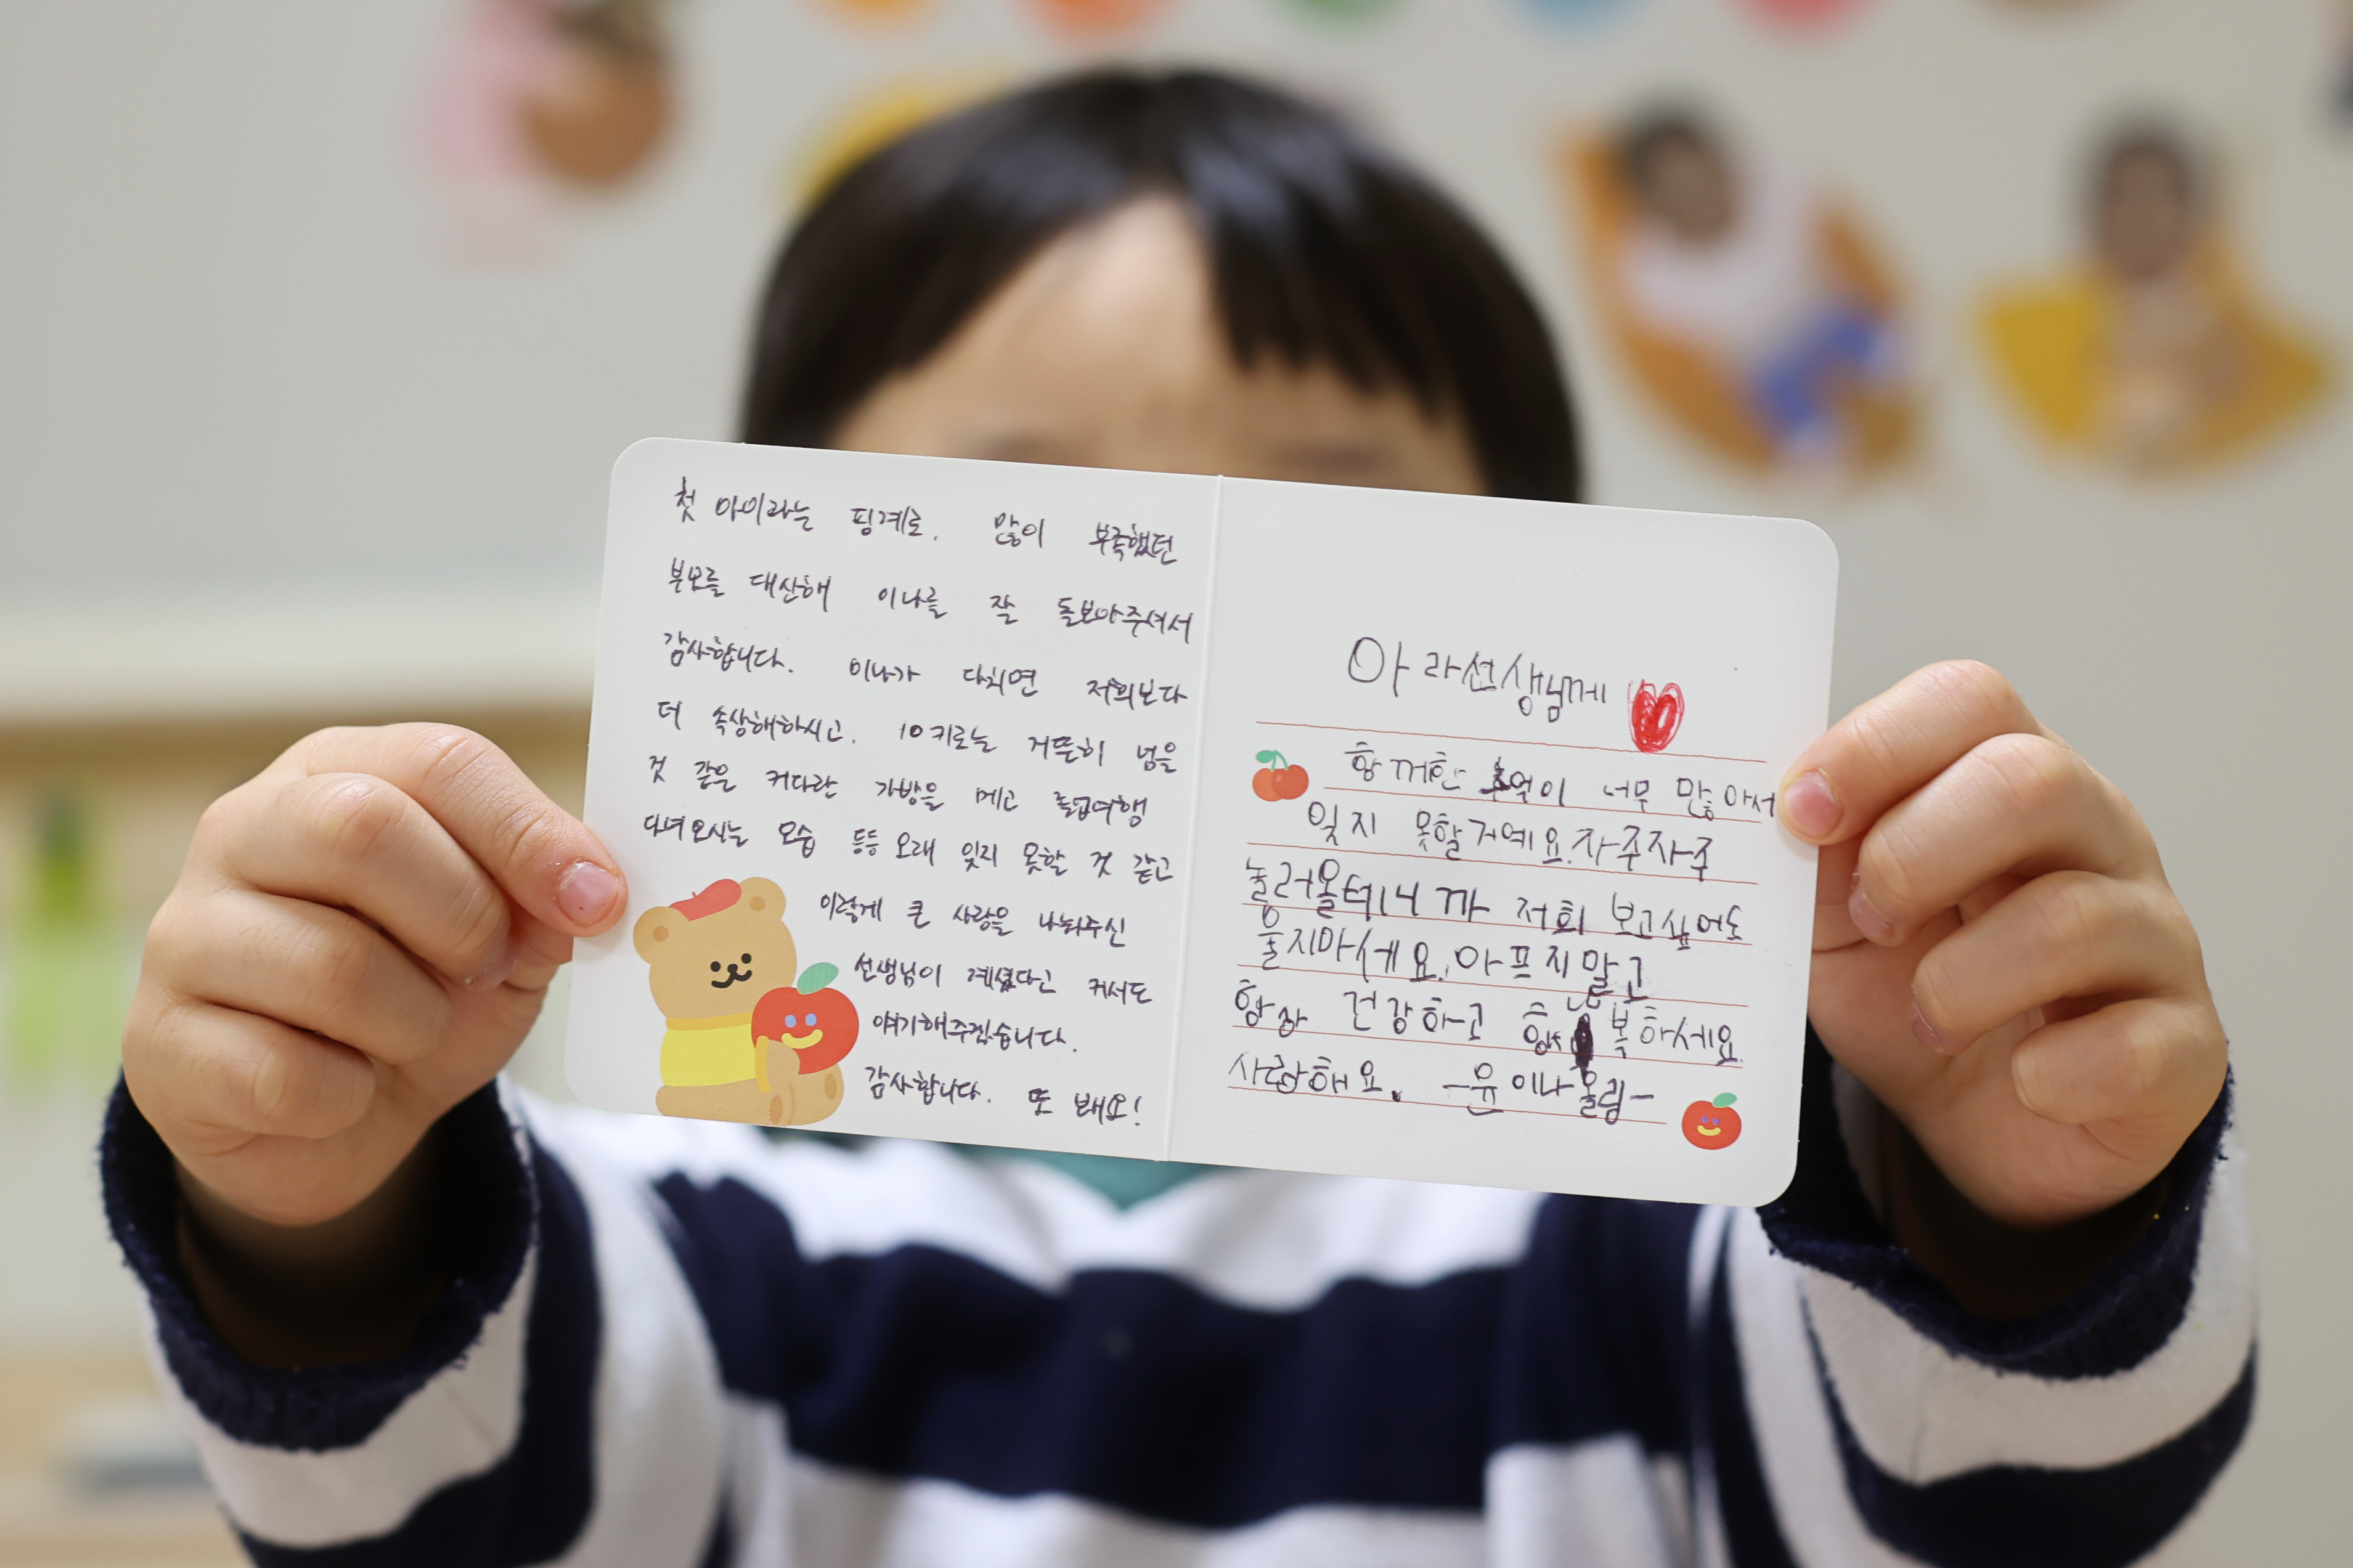 첫 아이라는 핑계로. 많이 부족했던
부모를 대신해 이나를 잘 돌보아주셔서
감사합니다. 이나가 다치면 저희보다
더 속상해하시고. 10키로는 거뜬히 넘을
것 같은 커다란 가방을 메고 졸업여행
다녀오시는 모습 등등 오래 잊지 못할 것 같고
이렇게 큰 사랑을 나눠주신
선생님이 계셨다고 커서도
얘기해주겠습니다.
감사합니다. 또 봬요!
아라선생님께
함께한 추억이 너무 많아서
잊지 못할거예요.자주자주
놀러올테니까 저희 보고싶어도
울지마세요.아프지말고
항상 건강하고 행복하세요
사랑해요. -윤이나올림-